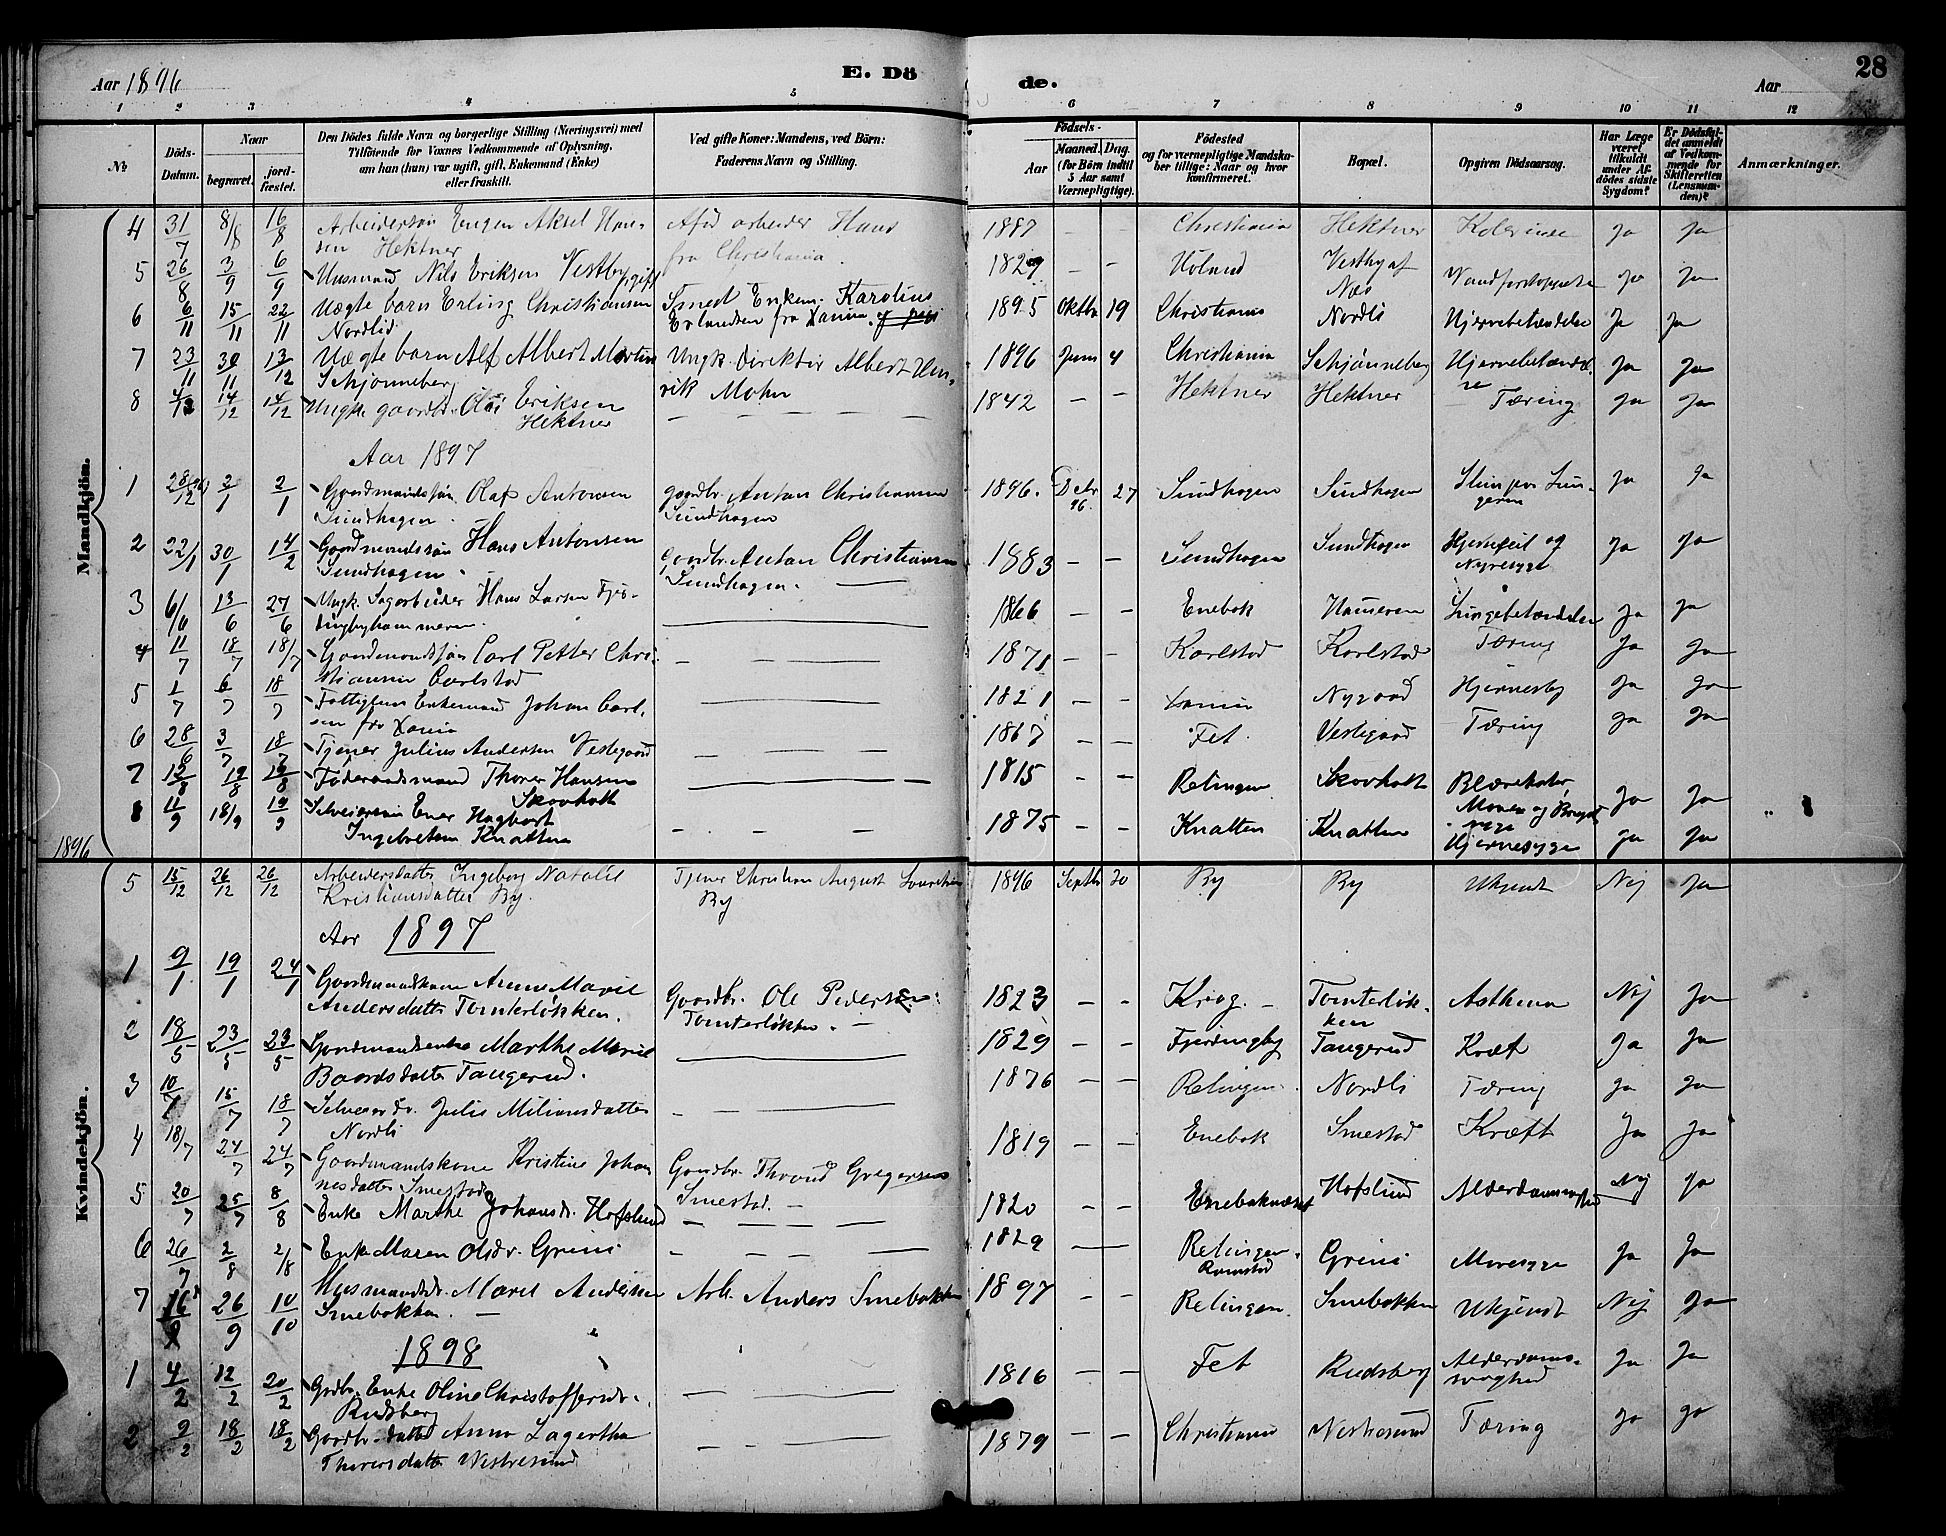 Aar 1896
E. Dö
de.
Aar
28
1 2 3 4 5 6 7 8 9 10 11 12
№
Döds-Datum.
Naar
begravet.
jord-fæstet.
Den Dödes fulde Navn og borgerlige Stilling (Næringsvei) med
Tilföiende for Voxnes Vedkommende af Oplysning,
om han (hun) var ugift, gift, Enkemand (Enke)
eller fraskilt.
Ved gifte Koner: Mandens, ved Börn:
Faderens Navn og Stilling.
Födsels-
Aar
Maaned. Dag.
(for Börn indtil
5 Aar samt
Værnepligtige).
Födested
og for værnepligtige Mandska-
ber tillige: Naar og hvor
konfirmeret.
Bopæl.
Opgiven Dödsaarsag.
Har Læge
været
tilkaldt
under Af-
dödes sidste
Sygdom?
Er Dödsfal-
det anmeldt
af Vedkom-
mende for
Skifteretten
(Lensman-
den)?
Anmærkninger.
Mandkjön.
4 31/7 8/8 16/8 Arbeidersøn Engen Aksel Han- Afd arbeider Hans 1887 – – Christiania Hektner Ja Ja
sen Hektner fra Christiania.
5 26/8 3/9 6/9 Husmand Nils Eriksen Vestby gift 1829 – – Vestby af Ja Ja
Næs
6 6/11 15/11 22/11 Uægte barn Erling Christiansen Smed Enkem. Karolius 1895 Oktbr 19 Christiania Nordli Hjernebetændelse Ja Ja
Nordlid Erlandsen fra Xania.
7 23/11 30/11 13/12 Uægte barn Alf Albert Martin Ungk. Direktør Albert Hen- 1896 Juni 4 Christiania Schjønneberg Hjernebetændel- Ja Ja
Schjønneberg rik Mohn se
8 4/12 14/12 14/12 Ungk. gaardbr. Ole Eriksen – – – – 1842 – – Hektner Hektner Tæring Ja Ja
Hektner
Aar 1897
1 28/12 2/1 2/1 Gaardmandssøn Olaf Antonsen gaardbr. Anton Christiansen 1896. Debr 27 Sundhagen Sundhagen Slim paa Lun- Ja Ja
Sundhagen. Sundhagen 96. gerne
2 22/1 30/1 14/2 Gaardmandssøn Hans Antonsen Gaardbr. Anton Christiansen 1883 – – Sundhagen Sundhagen Hjertefeil og Ja Ja
Sundhagen. Sundhagen. Nyresyge
3 13/6 27/6 Ungk. Sagarbeider Hans Larsen Fjer- 1866 – – Enebak Lungebetændelse Ja Ja
dingbyhammeren.
4 11/7 18/7 18/7 Gaardmandssøn Carl Petter Chri- – – – 1871 – – Karlstad Karlstad Tæring Ja Ja
stiansen Carlstad
5 1/7 6/7 18/7 Fattiglem Enkemand Johan Carl- 1821 – – Xania Nygaard Ja Ja
sen fra Xania
6 28/6 3/7 18/7 Tjener Julius Andersen Vestegaard – – – 1867 – – Fet. Vestegaard Tæring Ja Ja
7 19/8 19/8 Føderaadsmand Thorer Hansen 1815 – – Relingen Skovholt Blærekatar, Ja Ja
Skovholt
8 11/9 18/9 19/9 Selveiersøn Ener Hagbart – – – 1875 – – Knatten Knatten Hjernesyge Ja Ja
Ingebretsen Knatten
1896
Kvindekjön.
5 15/12 26/12 26/12 Arbeidersdatter Ingeborg Natalie Tjener Christian August 1896 Septbr 20 By By Ukjendt Nej Ja
Kristiansdatter By. By
Aar 1897
1 9/1 19/1 24/1 Gaardmandskone Anne Marie Gaardbr. Ole Pedersen: 1823 – – Krog. – Tomterløk- Asthma Nej Ja
Andersdatter Tomterløkken. Tomterløkken. – ken
2 18/5 23/5 23/5 Gaardmandsenke Marthe Marie 1829 – – Fjerdingby Tangerud Kræft Ja Ja
Baardsdatter Tangerud.
3 10/7 15/7 18/7 Selveierdr. Julie Miliansdatter – – 1876 – – Relingen. Nordli Tæring Ja Ja
Nordli
4 18/7 24/7 24/7 Gaardmandskone Kristine Johan- Gaardbr. Thrond Gregersen 1819 – – Enebak Smestad Kræft Ja Ja
nesdatter Smestad Smestad. –
5 20/7 25/7 8/8 Enke Marthe Johansdr. Hofslund – – – – 1820 – – Enebaknæset Hofslund Alderdomssvaghed Nej Ja
6 26/7 2/8 2/8 Enke Maren Olsdr. Grini – – – – 1829 – Relingen. Grini Mavesyge Ja Ja
Ramstad
7 16/9 26/9 10/10 Husmandsdr. Maret Andersen Arb. Anders Smebakken 1897 – – Relingen. Smebakken Ukjendt Nej Ja
Smebakken. –
1898
1 4/2 12/2 20/2 Grdbr. Enke Oline Christoffersdr. – – 1816 – – Fet Rudsberg Alderdoms- Ja Ja
Rudsberg svaghed
2 9/2 18/2 18/2 Gaardbr. datter Anna Lagertha – – – 1879 – – Christiania Nestesund Tæring Ja Ja
Thorersdatter